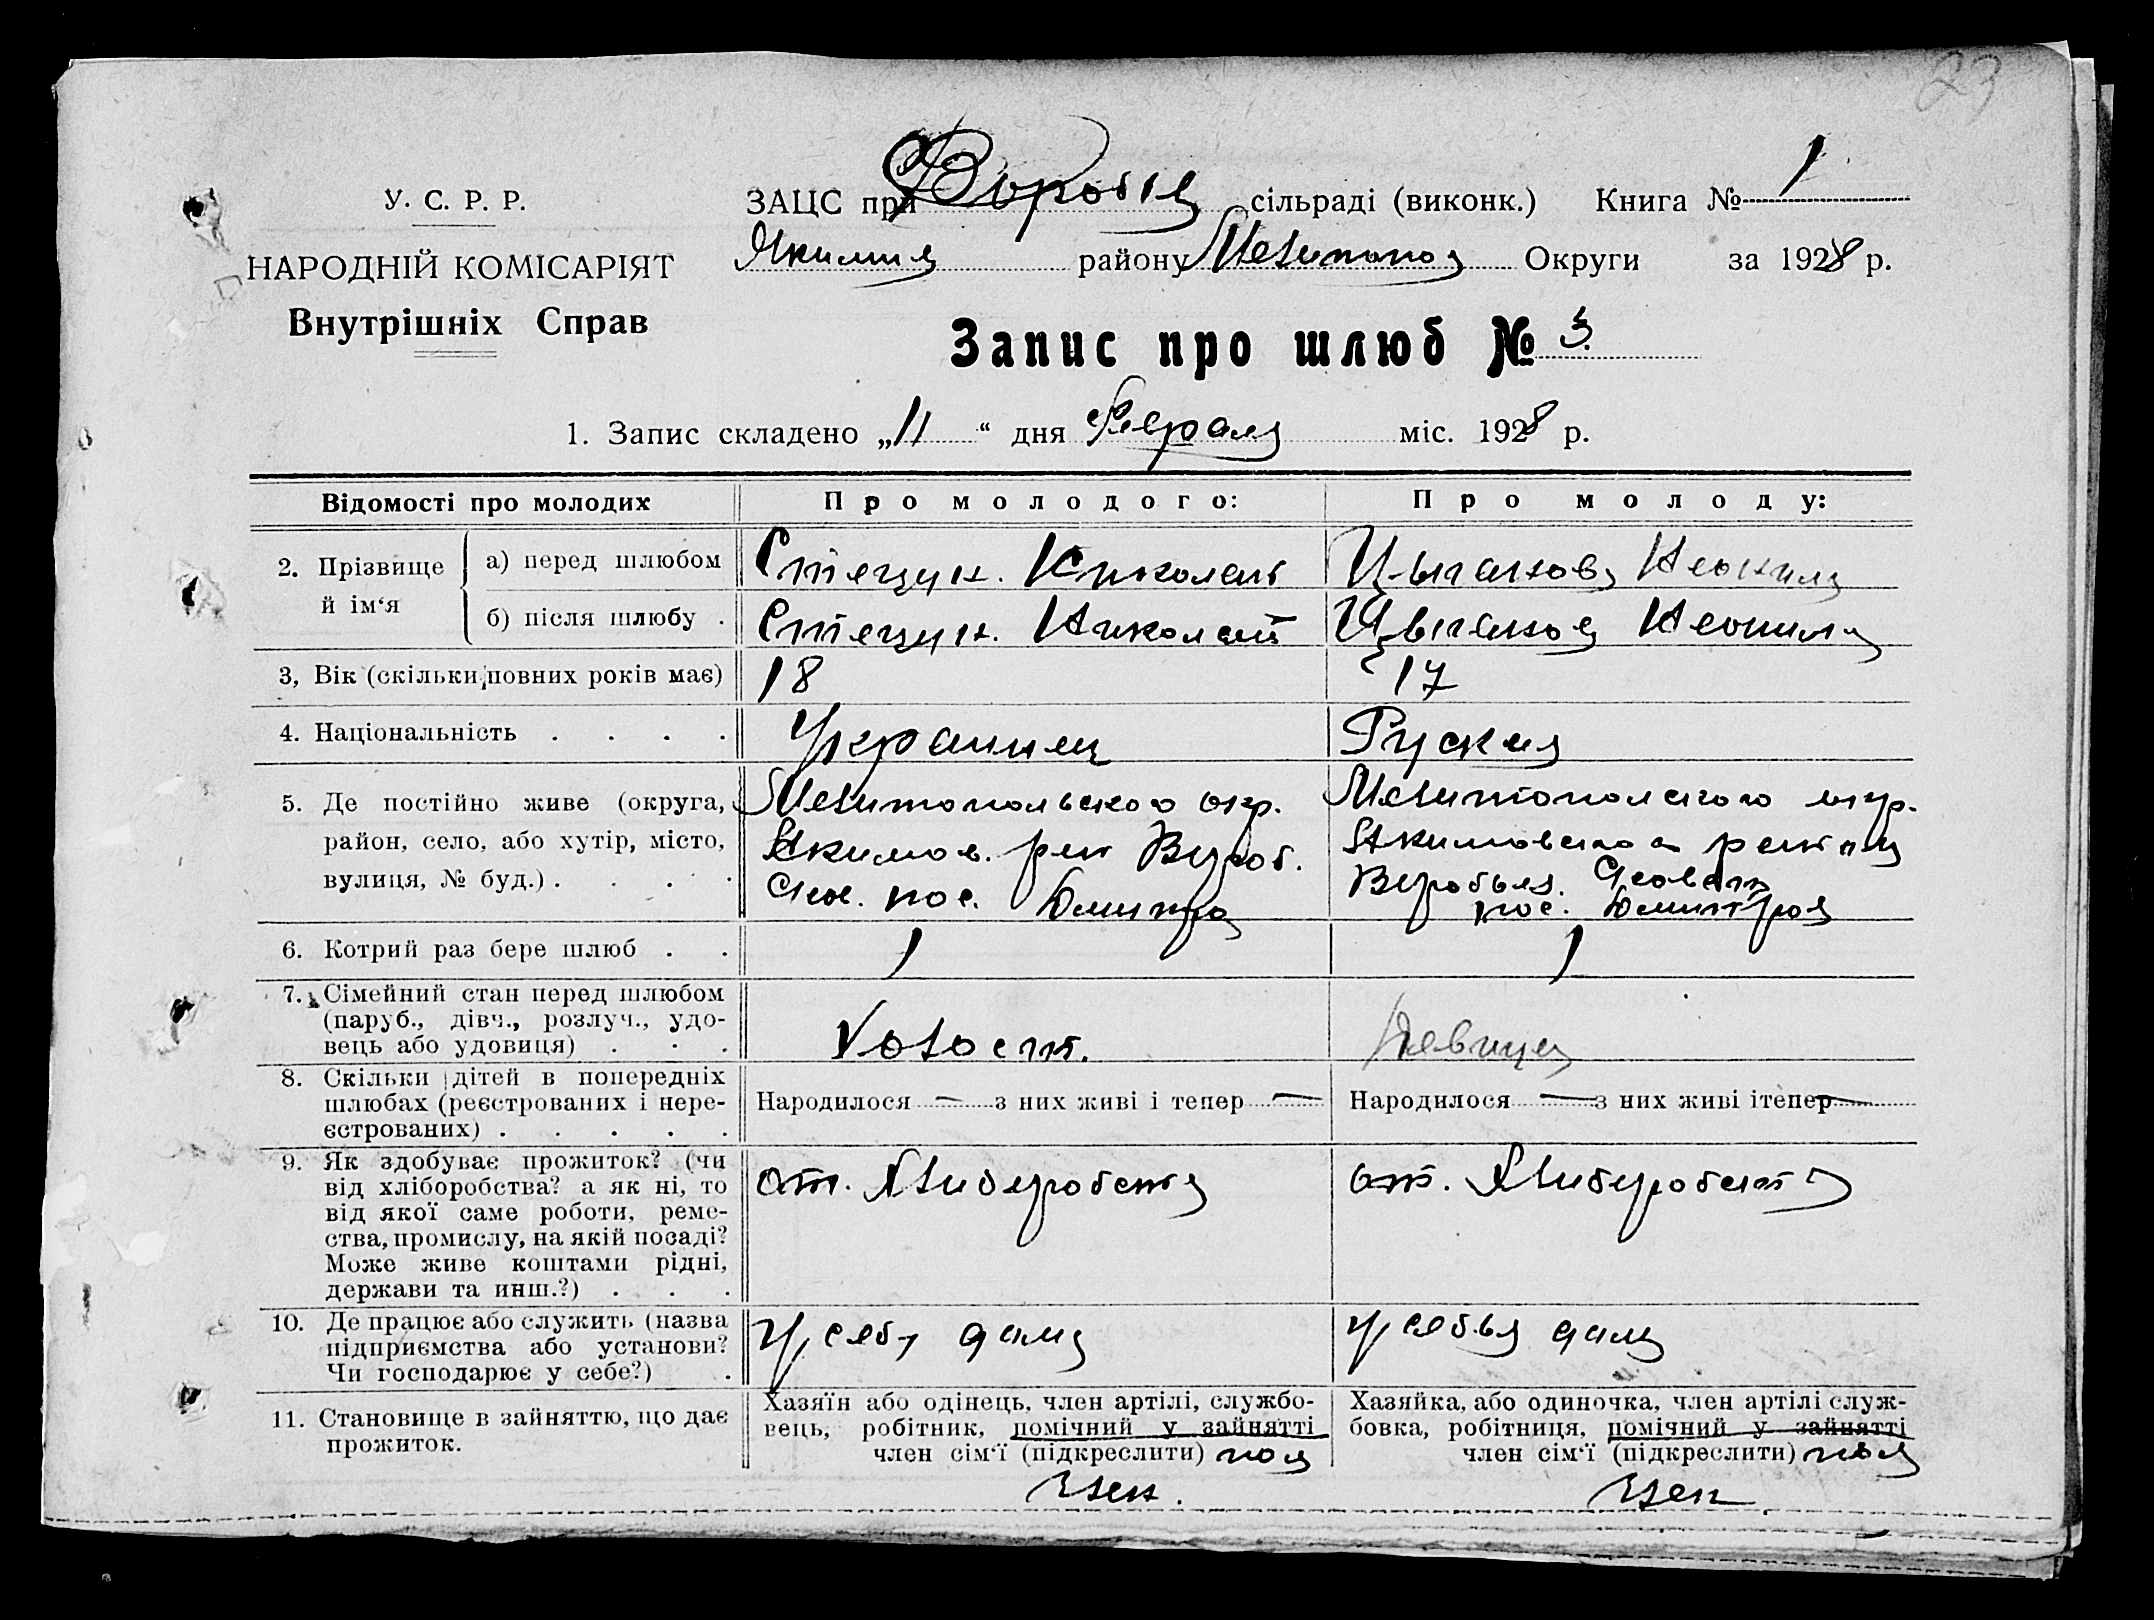 23
У. С. Р. Р.
НАРОДНІЙ КОМІСАРІЯТ
Внутрішніх Справ
ЗАЦС при Вороб сільраді (виконк.) Книга № 1
Якими району Мелитопол Округи за 1928 р.
Запис про шлюб № 3.
1. Запис складено „11“ дня Февраля міс. 1928 р.
Відомості про молодих Про молодого: Про молоду:
2. Прізвище й ім‘я а) перед шлюбом Стецун. Николай Цыганова Неонила
б) після шлюбу . Стецун. Николай Цыганова Неонила
3, Вік (скільки повних років має) 18 17
4. Національність . . . . Украинец Руская
5. Де постійно живе (округа, Мелитопольского окр. Мелитополского окр.
район, село, або хутір, місто, Акимов. рен Вороб. Акимовского
вулиця, № буд.) . . . . пос. Дмитро Сельсов. пос. Дмитров
6. Котрий раз бере шлюб . . 1 1
7. Сімейний стан перед шлюбом
(паруб., дівч., розлуч., удо-
вець або удовиця) . . . Холост. Девица
8. Скільки дітей в попередніх
шлюбах (реєстрованих і нере- Народилося — з них живі і тепер — Народилося — з них живі ітепер —
єстрованих) . . . . .
9. Як здобуває прожиток? (чи от. от.
від хліборобства? а як ні, то
від якої саме роботи, реме-
ства, промислу, на якій посаді?
Може живе коштами рідні,
держави та инш.?) . . .
10. Де працює або служить (назва у себя дома у себья дома
підприємства або установи?
Чи господарює у себе?) .
11. Становище в зайняттю, що дає Хазяїн або одінець, член артілі, службо- Хазяйка, або одиночка, член артілі служ-
прожиток. вець, робітник, помічний у зайнятті бовка, робітниця, помічний у зайнятті
член сім‘ї (підкреслити) член сім‘ї (підкреслити)
член. член